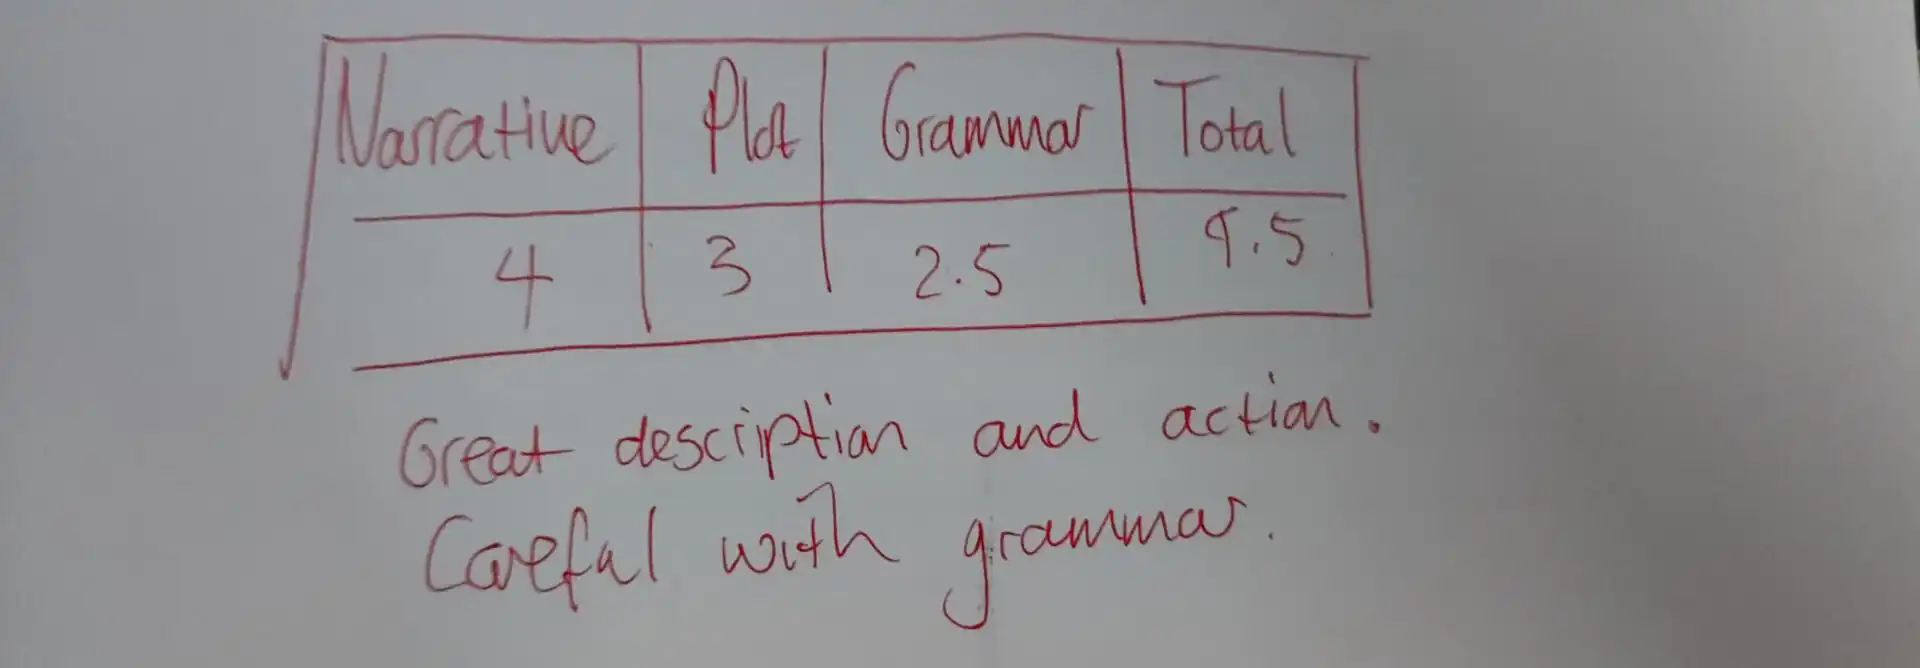 Narrative Plot Grammar Total
4 3 2.5 9.5
Great description and action.
Careful with grammar.